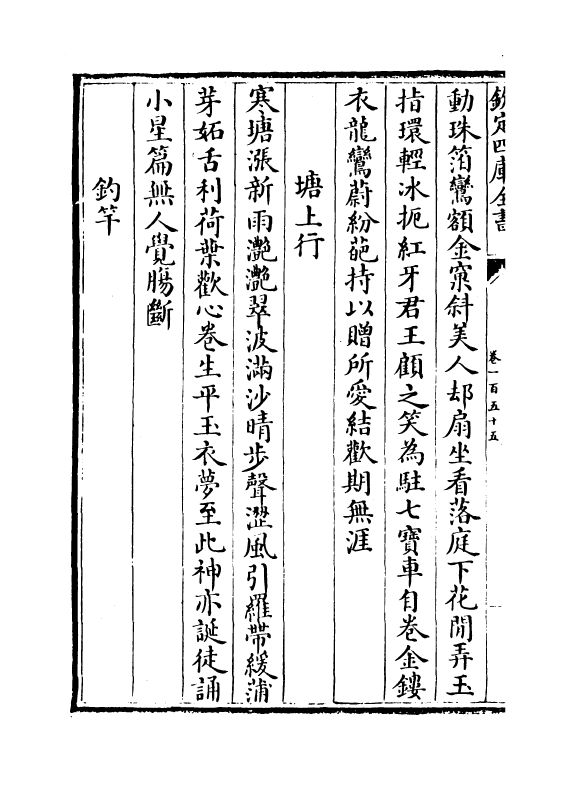 欽定四庫全書
卷一百五十五
動珠箔鸞額金窠斜美人却扇坐看落庭下花閒弄玉
指環輕冰扼紅牙君王顧之笑為駐七寶車自卷金鏤
衣龍鸞蔚紛葩持以贈所愛結歡期無涯
塘上行
寒塘漲新雨灧灧翠波滿沙晴步聲澀風引羅帶緩蒲
芽妬舌利荷葉歡心卷生平玉衣夢至此神亦誕徒誦
小星篇無人覺腸斷
釣竿